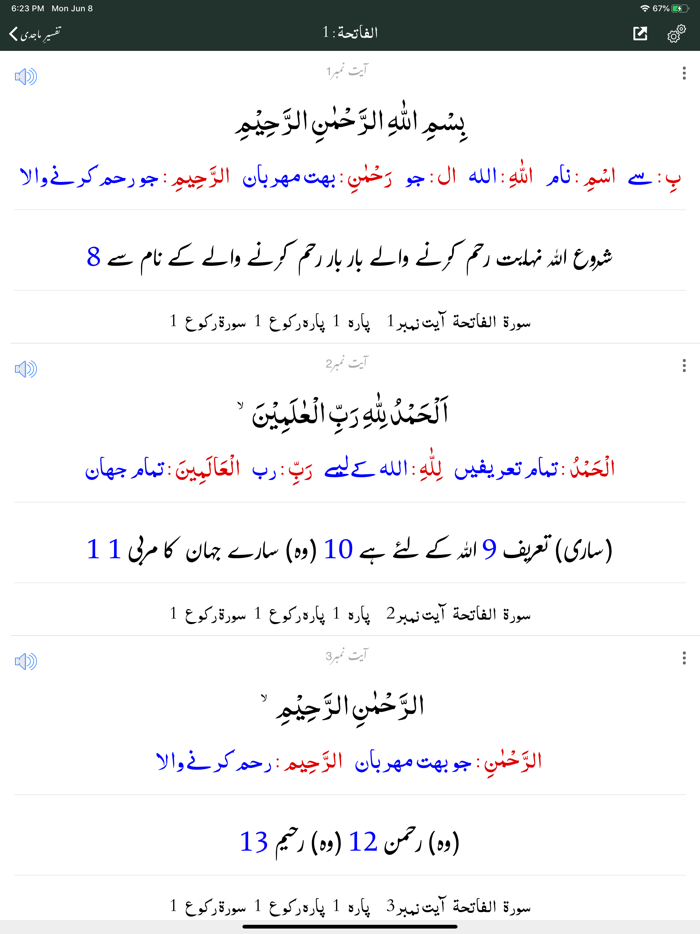 6:23 PM Mon Jun 8 67%
تفسیر ماجدی الفاتحة : 1
آیت نمبر1
بِسْمِ اللّٰهِ الرَّحْمٰنِ الرَّحِيْمِ
بِ : سے اسْمِ : نام اللّٰهِ : الله ال : جو رَحْمٰنِ : بهت مهربان الرَّحِيمِ : جو رحم کرنے والا
شروع اللہ نہایت رحم کرنے والے بار بار رحم کرنے والے کے نام سے 8
سورة الفاتحة آیت نمبر 1 پاره 1 پاره رکوع 1 سورة رکوع 1
آیت نمبر2
اَلْحَمْدُ لِلّٰهِ رَبِّ الْعٰلَمِيْنَ ۙ
الْحَمْدُ : تمام تعریفیں لِلّٰهِ : الله کے لیے رَبِّ : رب الْعَالَمِينَ : تمام جهان
(ساری) تعریف 9 اللہ کے لئے ہے 10 (وہ) سارے جہان کا مربی 11
سورة الفاتحة آیت نمبر 2 پاره 1 پاره رکوع 1 سورة رکوع 1
آیت نمبر3
الرَّحْمٰنِ الرَّحِيْمِ ۙ
الرَّحْمٰنِ : جو بهت مهربان الرَّحِيم : رحم کرنے والا
(وہ) رحمن 12 (وہ) رحیم 13
سورة الفاتحة آیت نمبر 3 پاره 1 پاره رکوع 1 سورة رکوع 1